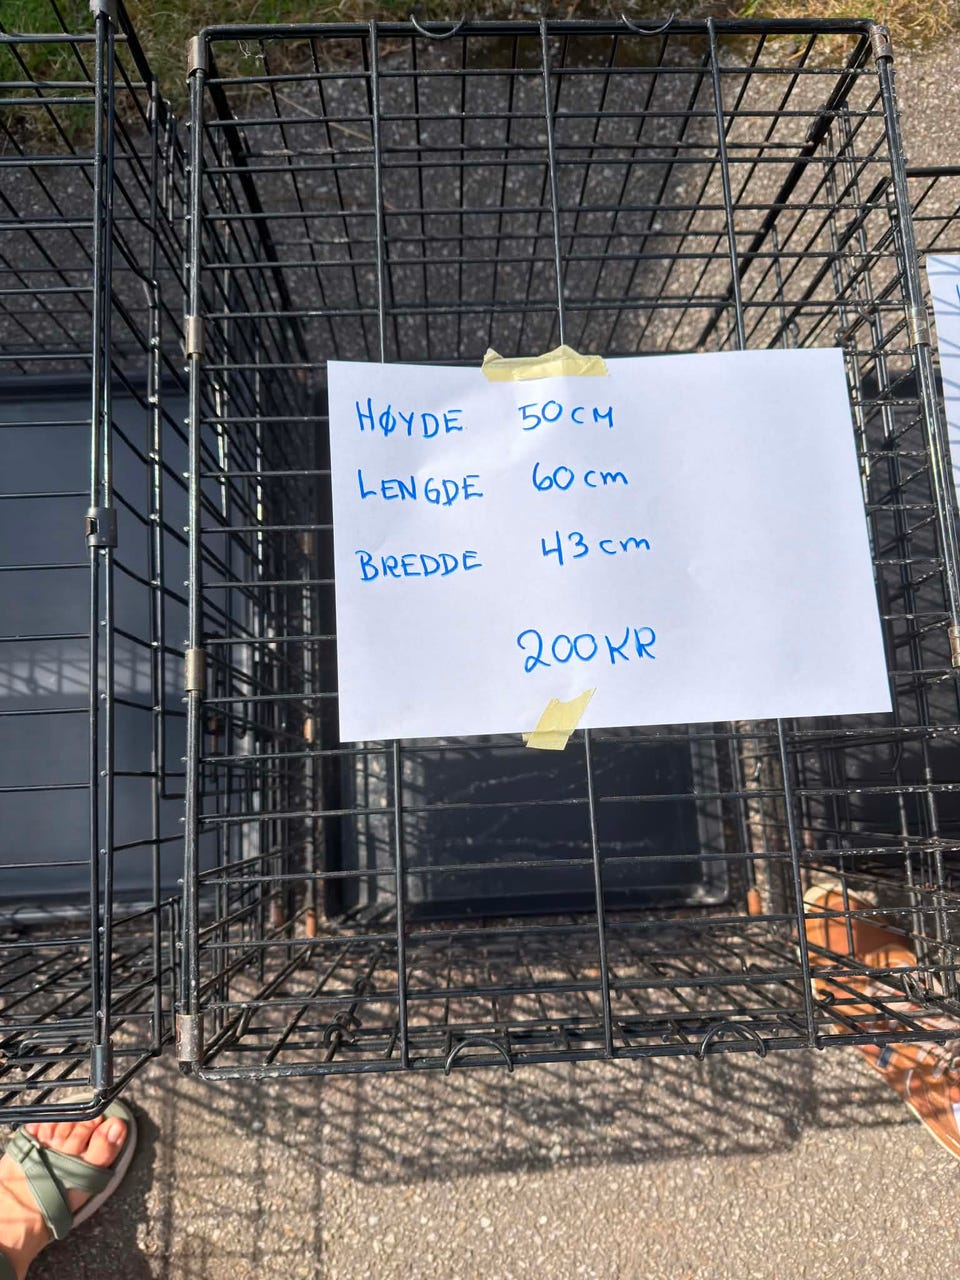 HØYDE 50 CM
LENGDE 60 cm
BREDDE 43 cm
200 KR